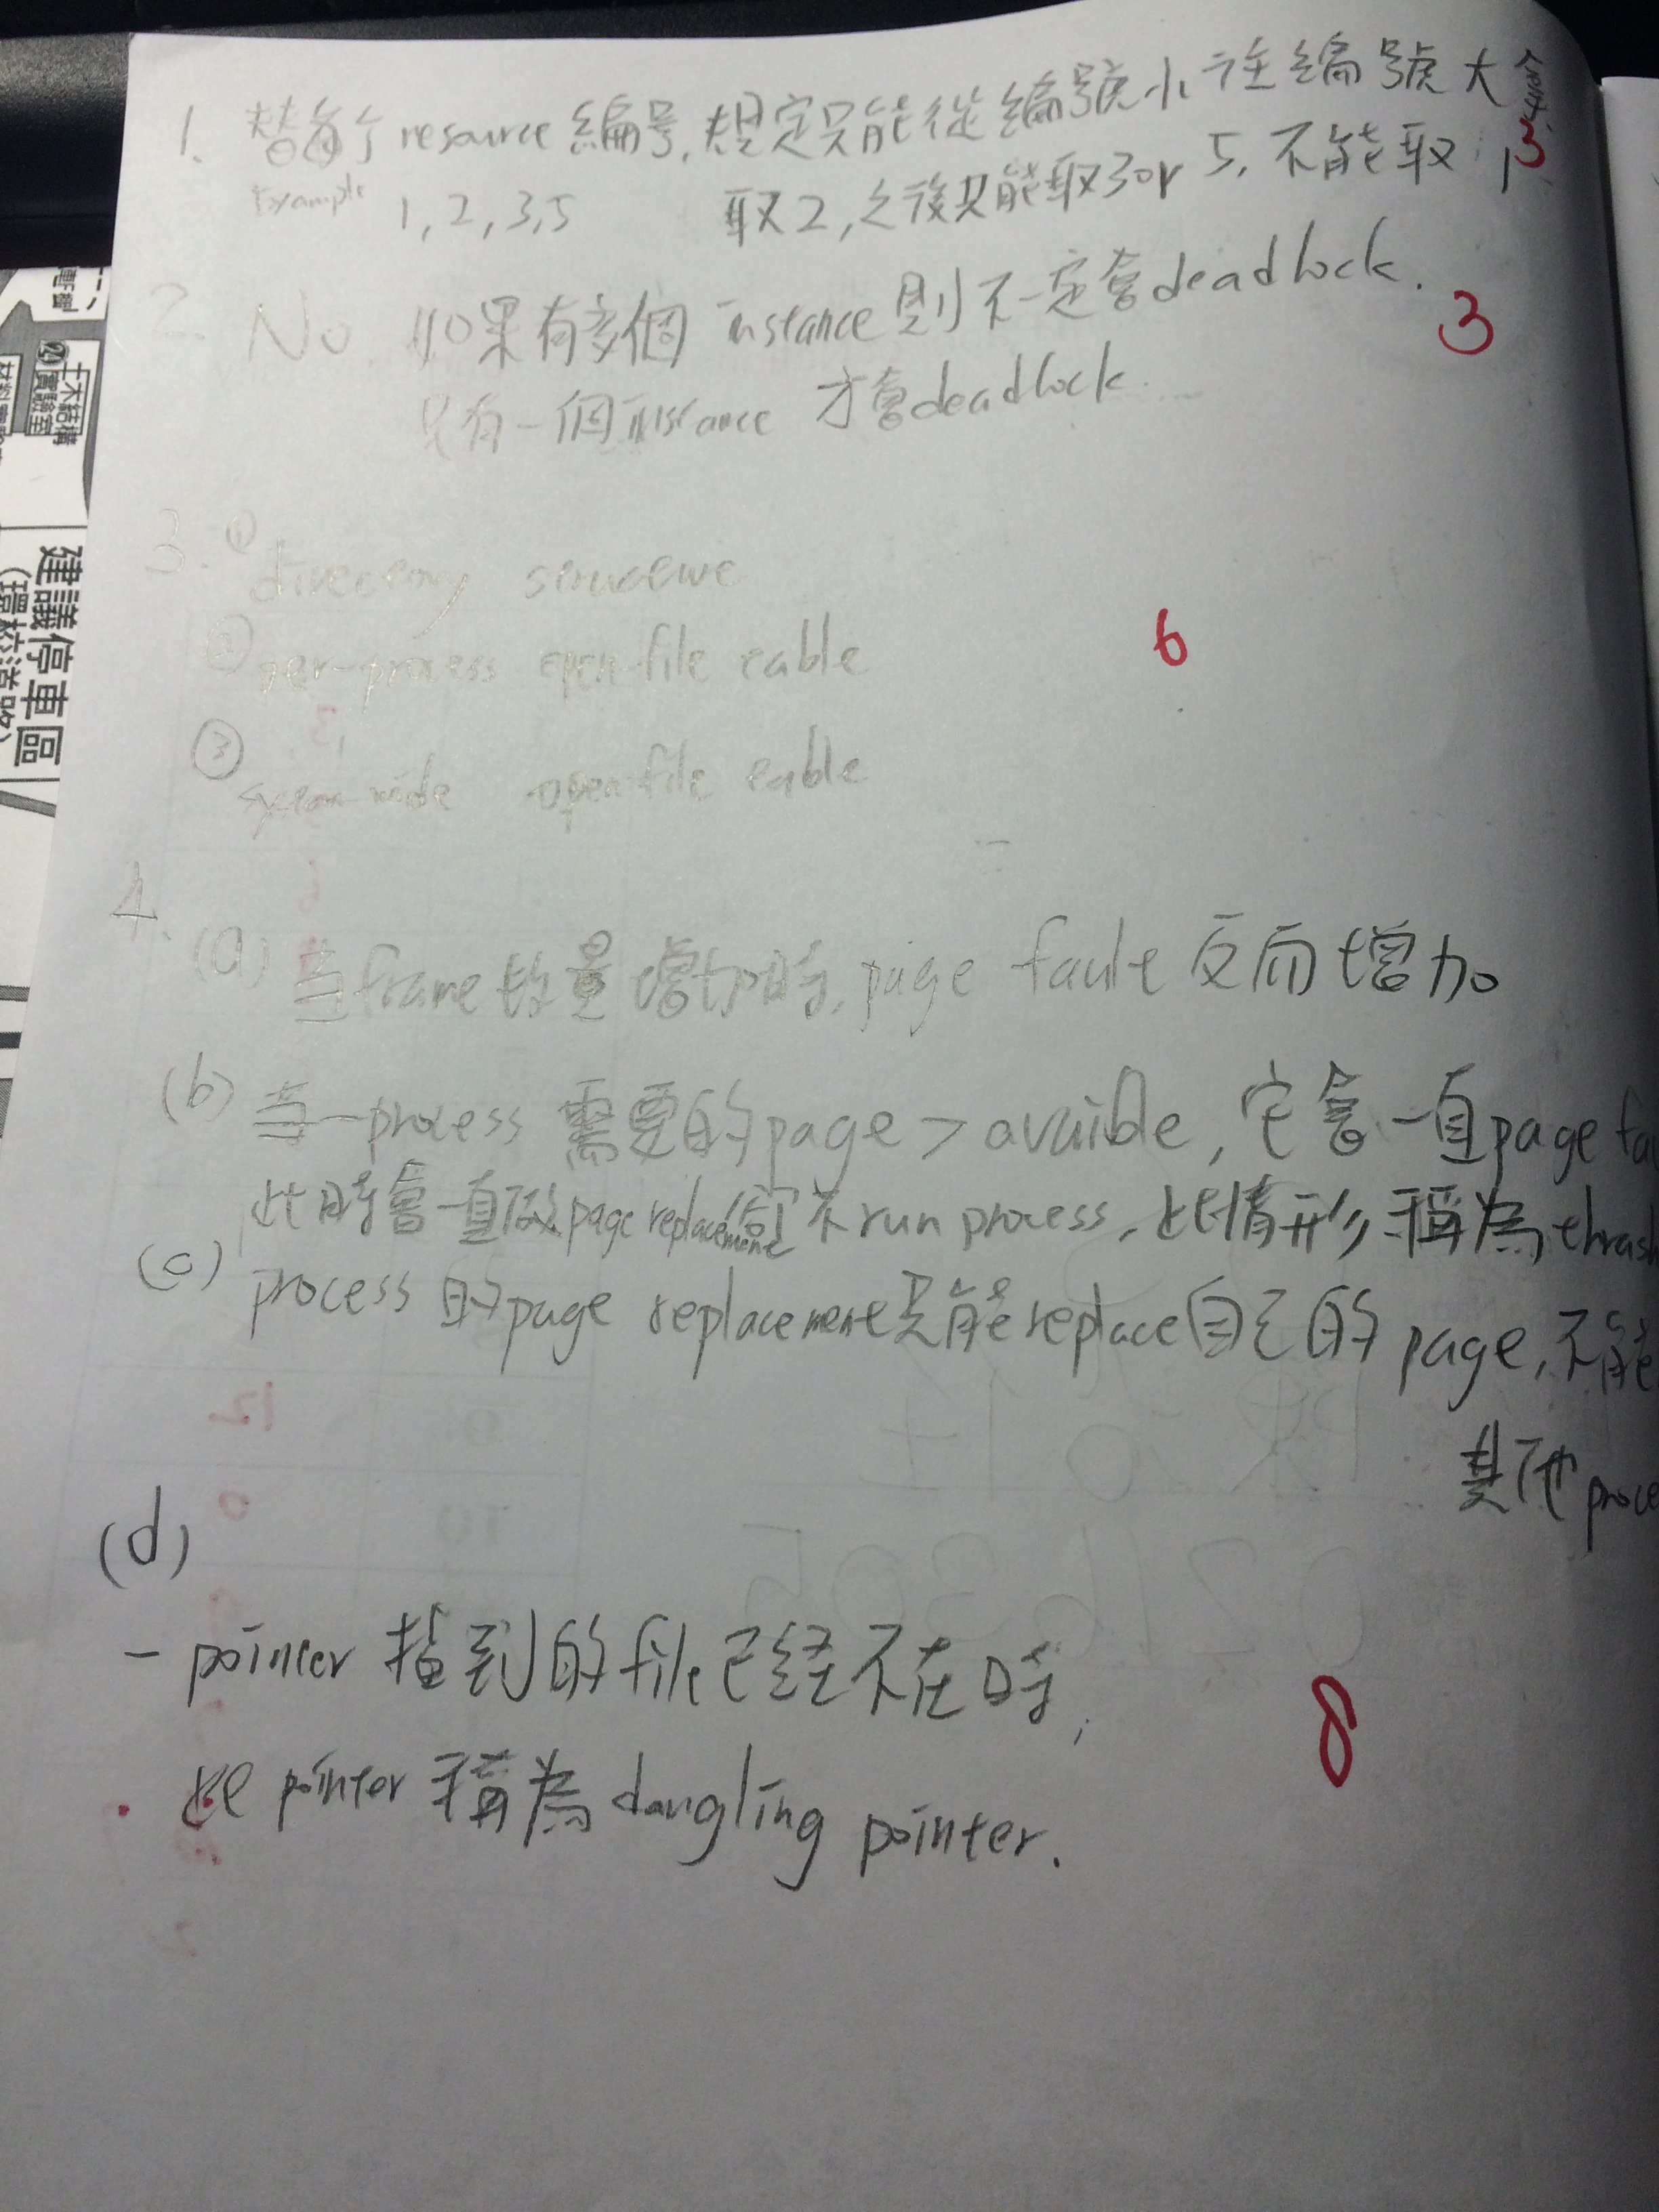 1. 替每个 resource 編号,規定只能從編號小往編號大
3
Example 1, 2, 3, 5 取2,之後只能取3 or 5, 不能取 1
2. No. 如果有多個 instance 則不一定會 deadlock.
3
只有一個 instance 才會 deadlock.
3. ① directory structure
② per-process open-file table
6
③ system-wide open-file table
4. (a) 當frame數量增加時, page fault 反而增加。
(b) 當一process 需要的page > avaible, 它會一直page fau
此時會一直做page replacement而不run process, 此情形稱為thrash
(c) process 的page replacement只能replace自己的 page, 不能
其他 proce
(d)
一 pointer 指到的 file 已經不在時,
此 pointer 稱為 dangling pointer.
8
建議停車區
土木結構
實驗室